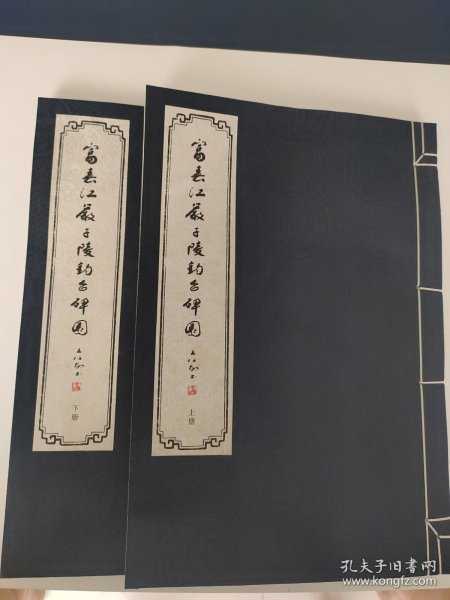 富春江嚴子陵釣台碑園
上册
富春江嚴子陵釣台碑園
下册
孔夫子旧书网
www.kongfz.com